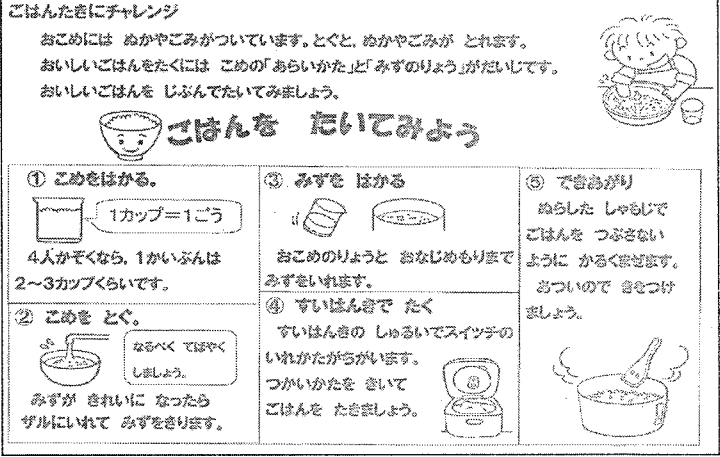 ごはんたきにチャレンジ
おこめには ぬかやごみがついています。とぐと、ぬかやごみが とれます。
おいしいごはんをたくには こめの「あらいかた」と「みずのりょう」がだいじです。
おいしいごはんを じぶんでたいてみましょう。
ごはんを たいてみよう
① こめをはかる。
1カップ＝1ごう
4人かぞくなら、1かいぶんは
2～3カップくらいです。
② こめを とぐ。
なるべく てばやく
しましょう。
みずが きれいに なったら
ザルにいれて みずをきります。
③ みずを はかる
おこめのりょうと おなじめもりまで
みずをいれます。
④ すいはんきで たく
すいはんきの しゅるいでスイッチの
いれかたがちがいます。
つかいかたを きいて
ごはんを たきましょう。
⑤ できあがり
ぬらした しゃもじで
ごはんを つぶさない
ように かるくまぜます。
あついので きをつけ
ましょう。